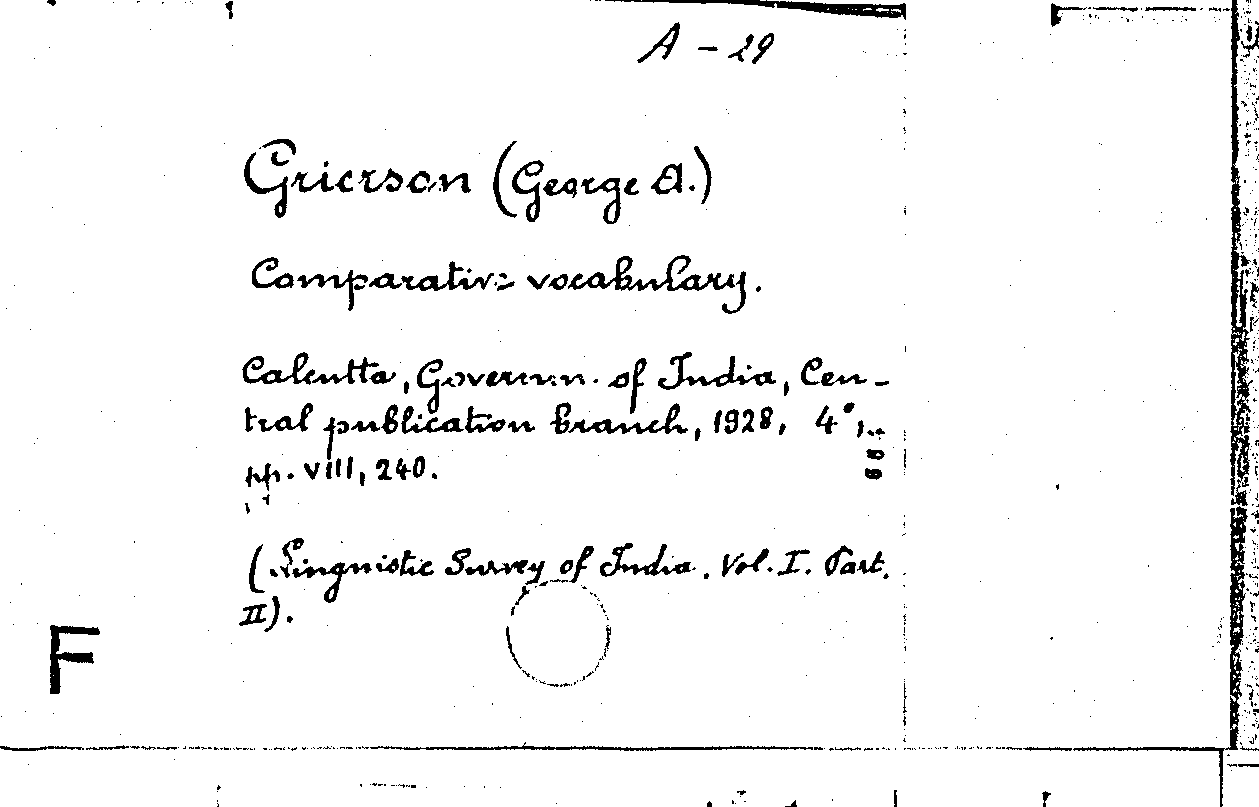 A - 29
Grierson (George A.)
Comparative vocabulary.
Calcutta, Governm. of India, Cen-
tral publication branch, 1928, 4°,
pp. VIII, 240.
(Linguistic Survey of India. Vol. I. Part.
II).
F